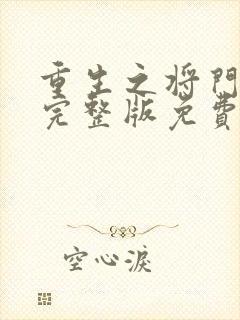 重生之将門
完整版免費
空心淚